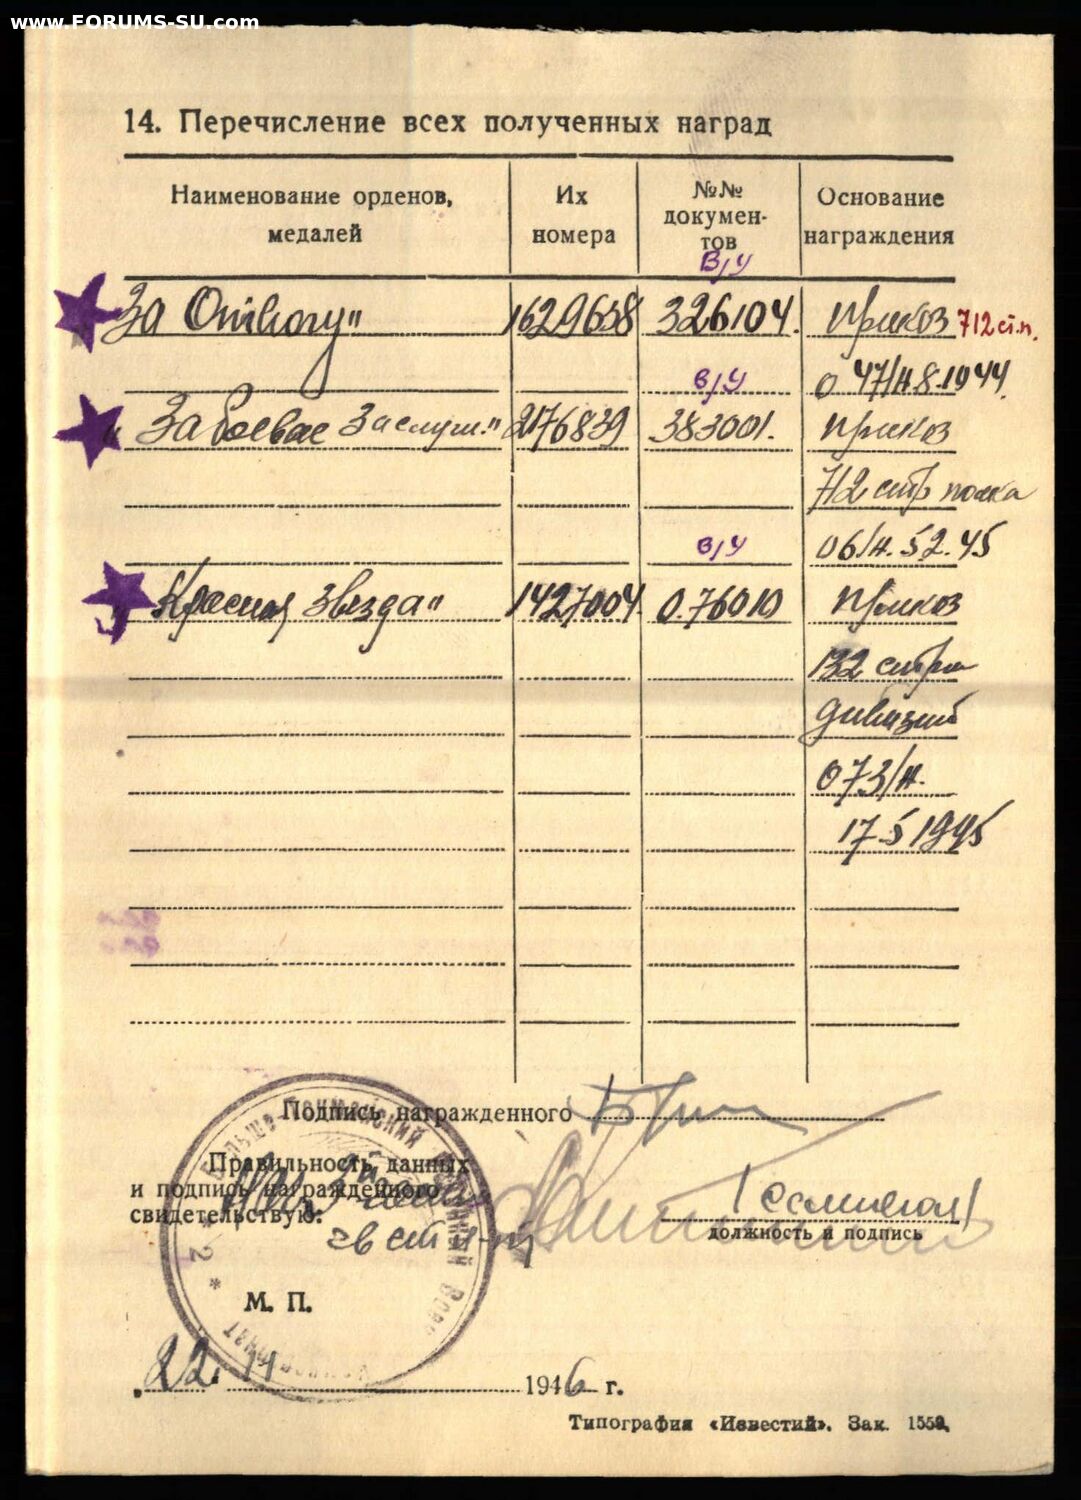 www.FORUMS-SU.com
14. Перечисление всех полученных наград
Наименование орденов, медалей
Их номера
№№ документов
Основание награждения
В/У
За Отвагу" 1629658 326104. Приказ 712 ст.п.
В/У 047/н 8.1944
"За боевые заслуги." 2176839 383001. Приказ
712 стр полка
В/У 06/н. 5 2. 45
"Красная Звезда" 1427004 0.76010 Приказ
132 стр
дивизий
073/н.
17 5 1945
Подпись награжденного
Правильность данных
и подпись награжденного
свидетельствую:
должность и подпись
М. П.
22. 11 1946 г.
Типография «Известий». Зак. 1559.